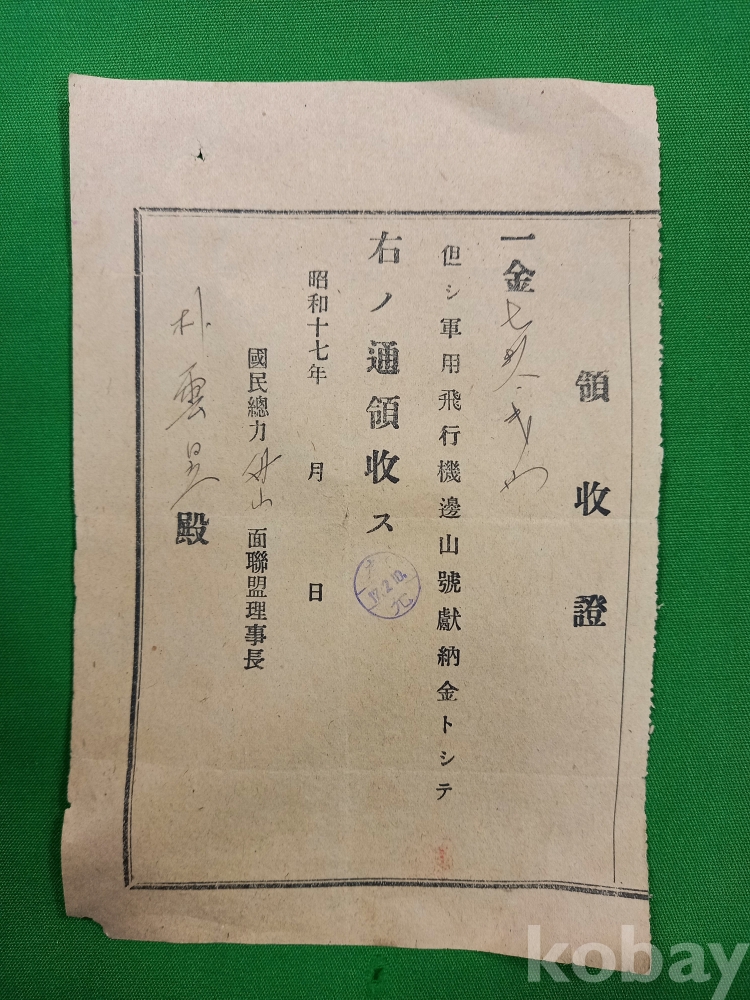 領收證
一金七
但シ軍用飛行機邊山號獻納金トシテ
右ノ通領收ス
17.2.10.
昭和十七年 月 日
國民總力 山面聯盟理事長
朴雲昊殿
kobay